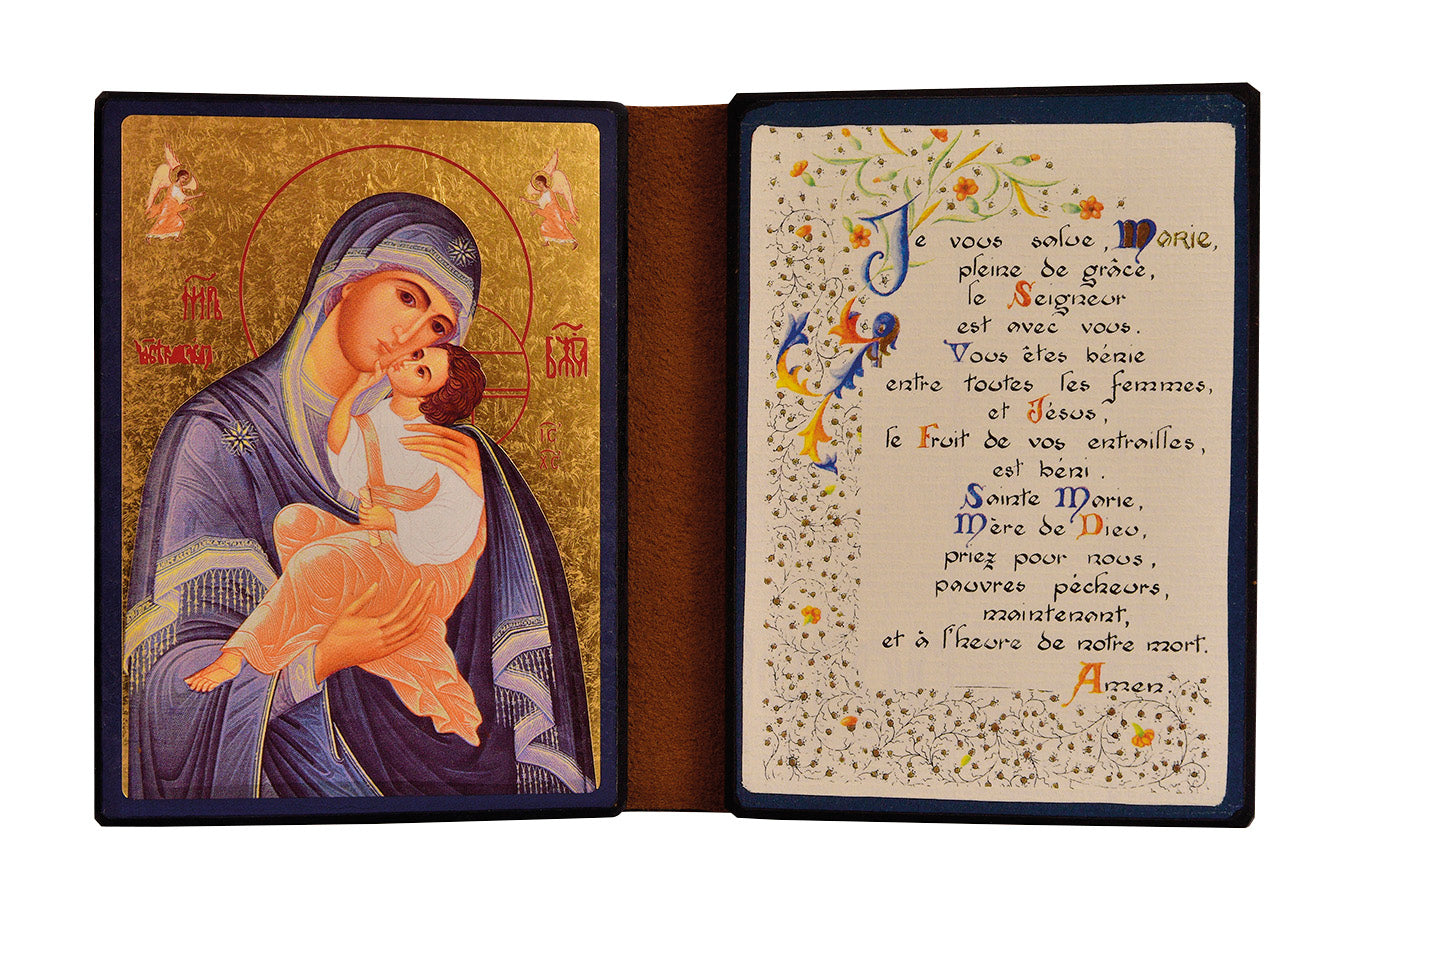 Je vous salue, Marie,
pleine de grâce,
le Seigneur
est avec vous.
Vous êtes bénie
entre toutes les femmes,
et Jésus,
le Fruit de vos entrailles,
est béni.
Sainte Marie,
Mère de Dieu,
priez pour nous,
pauvres pécheurs,
maintenant,
et à l'heure de notre mort.
Amen.